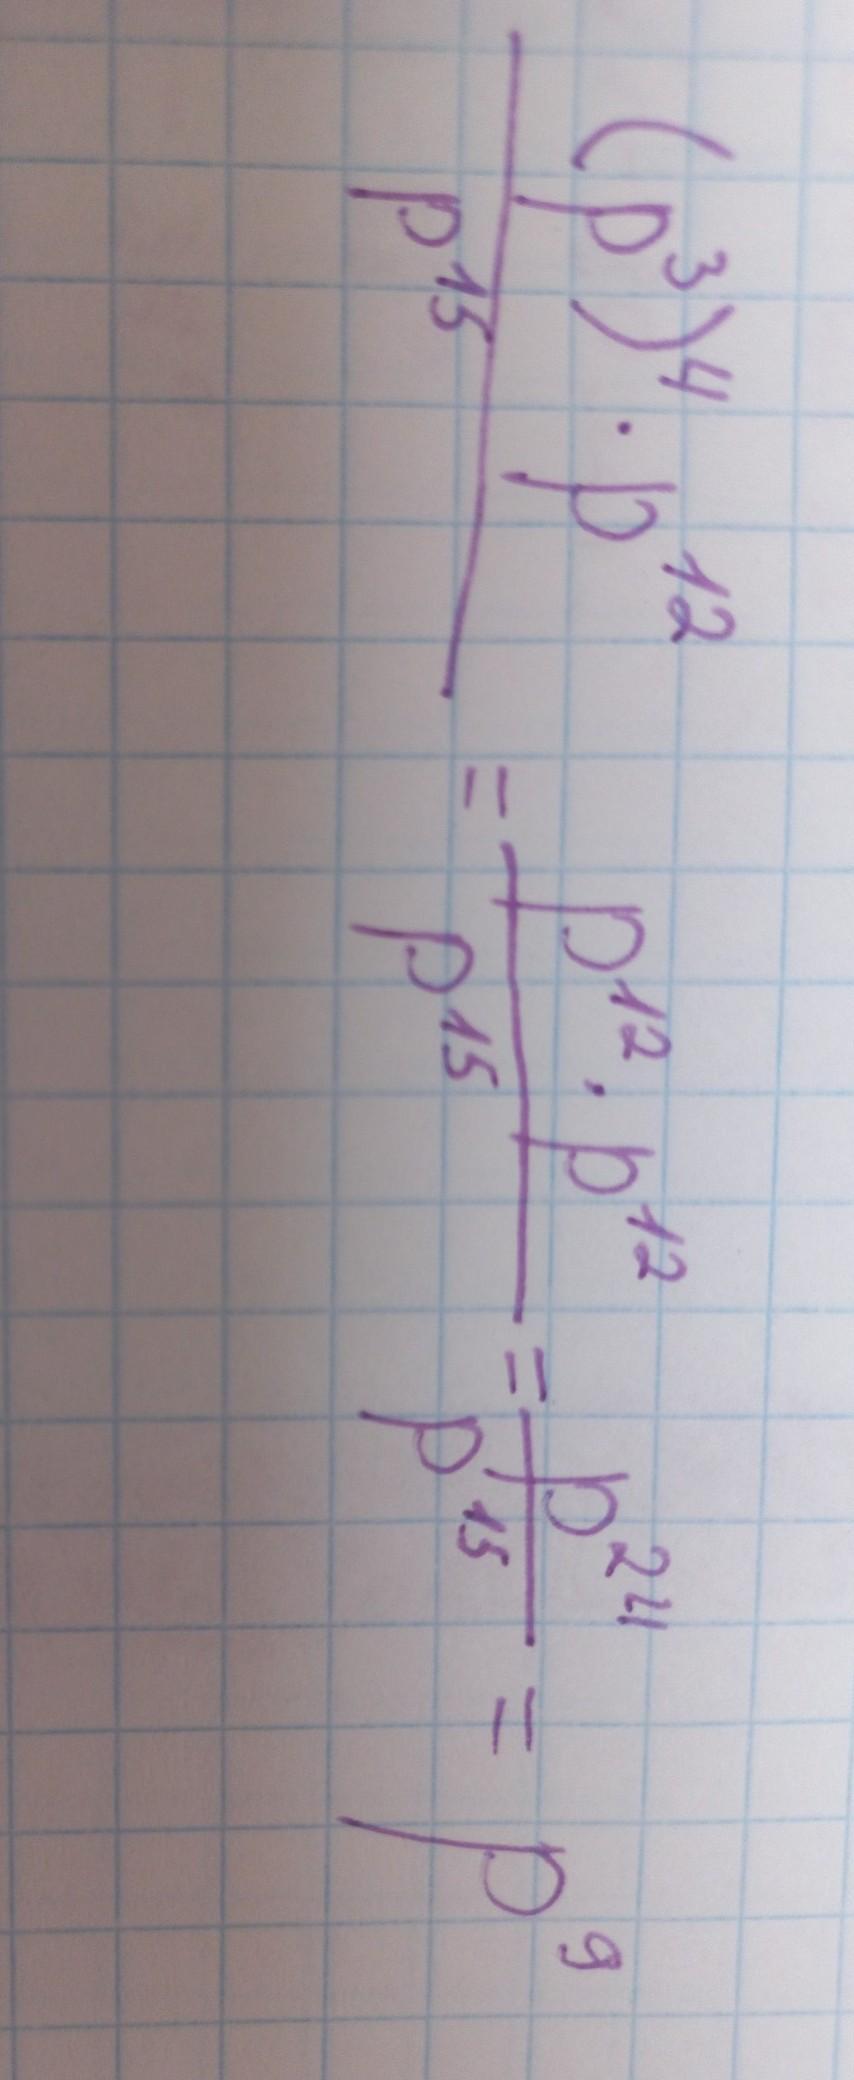 (p³)⁴ · p¹² / p¹⁵ = p¹² · p¹² / p¹⁵ = p²⁴ / p¹⁵ = p⁹